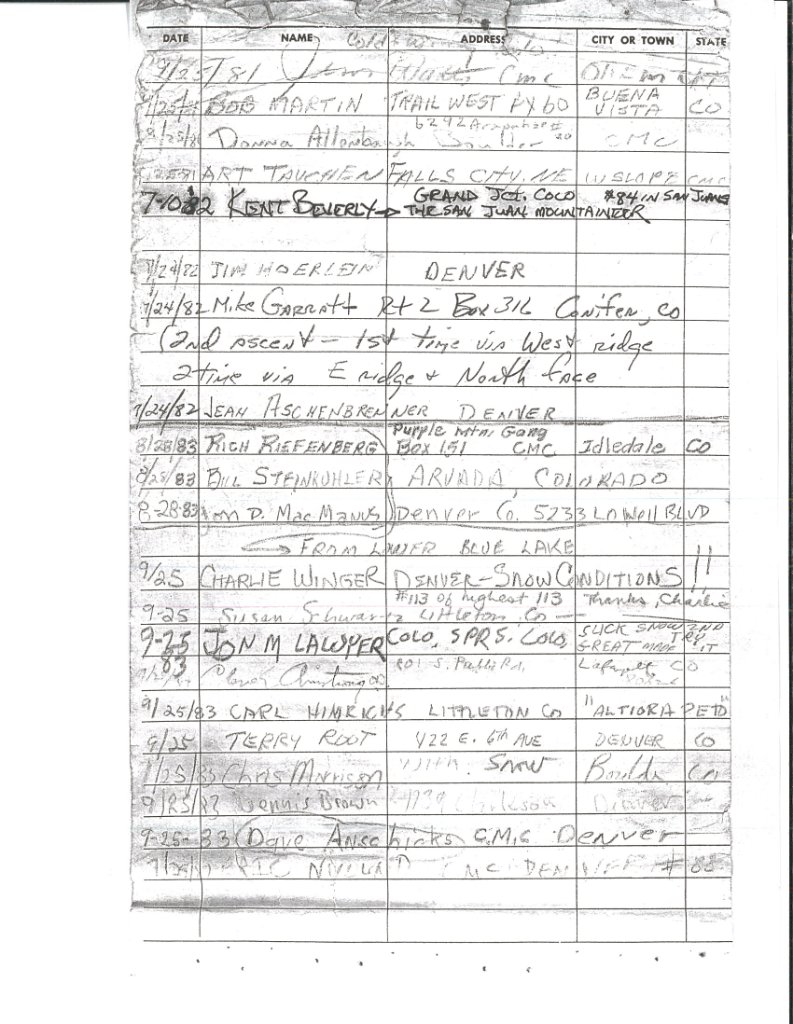 DATE NAME ADDRESS CITY OR TOWN STATE
Cold
9/25/81 CMC
BOB MARTIN TRAIL WEST PX 60 BUENA VISTA CO
Donna Boulder CMC
ART TAUCHEN FALLS CITY, NE W SLOPE CMC
7-10-82 KENT BEVERLY → GRAND JCT. COLO #84 IN SAN JUANS
THE SAN JUAN MOUNTAINEER
7/24/82 JIM HOERLEIN DENVER
7/24/82 Mike GARRATT Rt 2 Box 316 Conifer, CO
(2nd ascent - 1st time via West ridge
2 time via E ridge & North face
7/24/82 JEAN ASCHENBRENNER DENVER
Purple Mtn. Gang
8/28/83 RICH RIEFENBERG Box 151 CMC Idledale CO
8/28/83 BILL STEINKUHLER ARVADA, COLORADO
8-28-83 D. MacManus Denver Co, 5233 LOWell BLVD
→ FROM LOWER BLUE LAKE
9/25 CHARLIE WINGER DENVER-SNOW CONDITIONS!!
#113 of highest 113 Thanks, Charlie
9-25 Susan Schwartz Littleton Co
9-25 83 JON M LAWYER COLO. SPRS. COLO, SLICK SNOW 2ND TRY
GREAT MADE IT
801 S. Lafayette CO
9/25/83 CARL HINRICHS LITTLETON CO "ALTIORA PETO"
9/25 TERRY ROOT 422 E. 6th AVE DENVER CO
9/25/83 Chris Morrison Snow Boulder Co
9/25/83 Dennis Brown Clarkson Denver
9-25-83 Dave C.M.C Denver
CMC DENVER